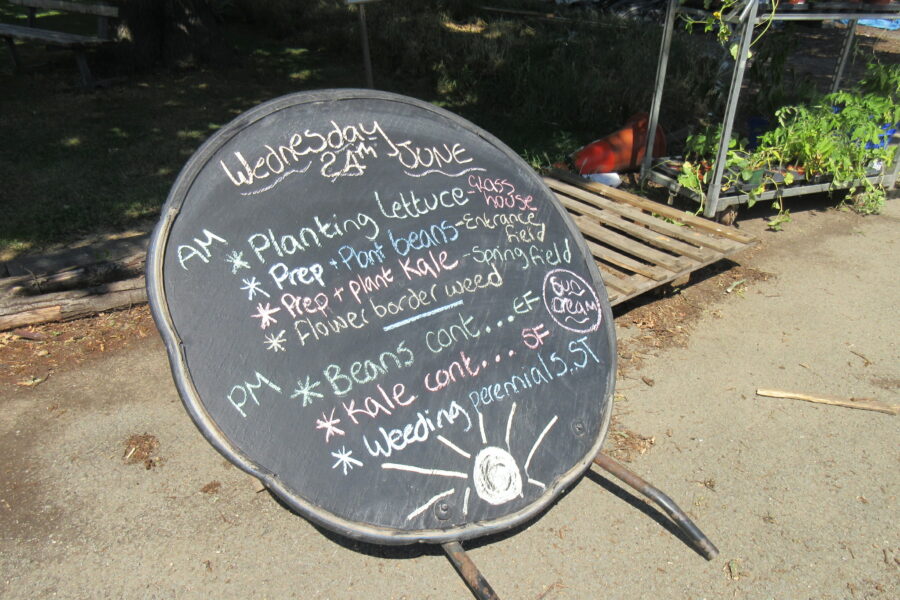 Wednesday
24th JUNE
AM * Planting lettuce - Glass house
* Prep + Plant beans - Entrance field
* Prep + plant Kale - Spring Field
* Flower border weed
SUN CREAM
PM * Beans cont... EF
* Kale cont... SF
* Weeding perennials, ST